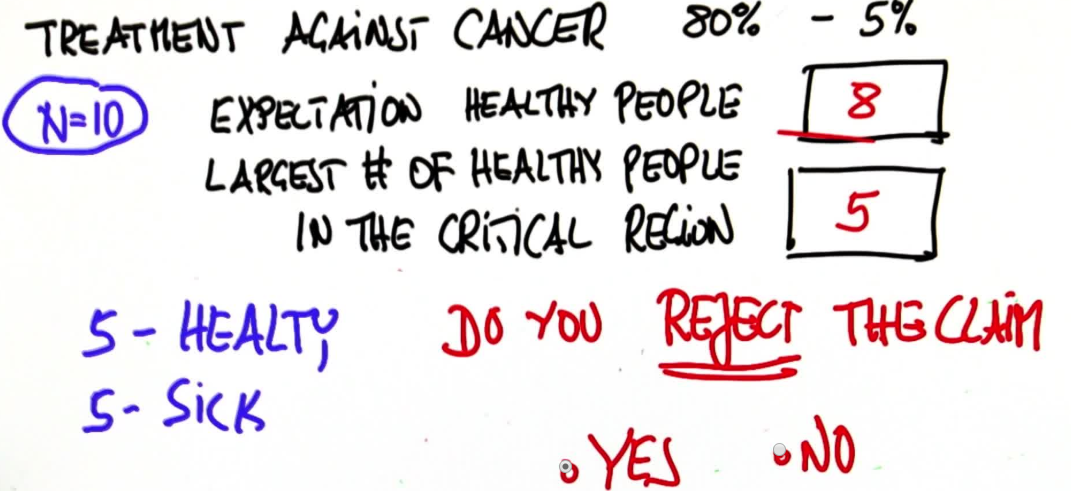 TREATMENT AGAINST CANCER 80% - 5%
N=10 EXPECTATION HEALTHY PEOPLE 8
LARGEST # OF HEALTHY PEOPLE
IN THE CRITICAL REGION 5
5 - HEALTY
5 - SICK
DO YOU REJECT THE CLAIM
YES NO